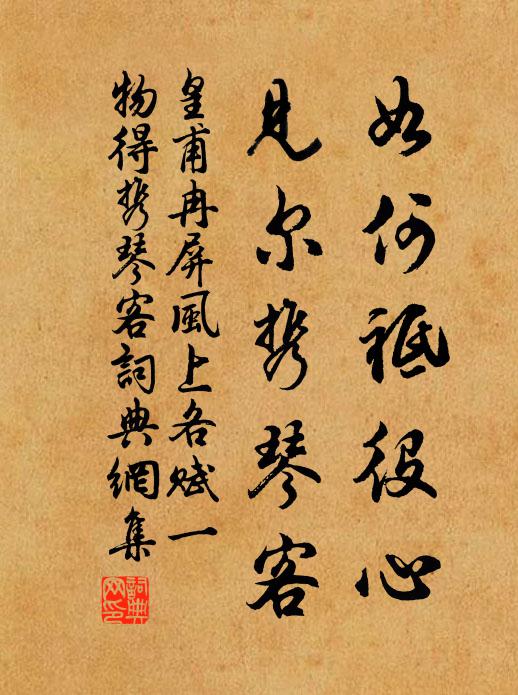 如何祗役心
见尔携琴客
皇甫冉屏風上各赋一
物得携琴客詞典網集
詞典网印